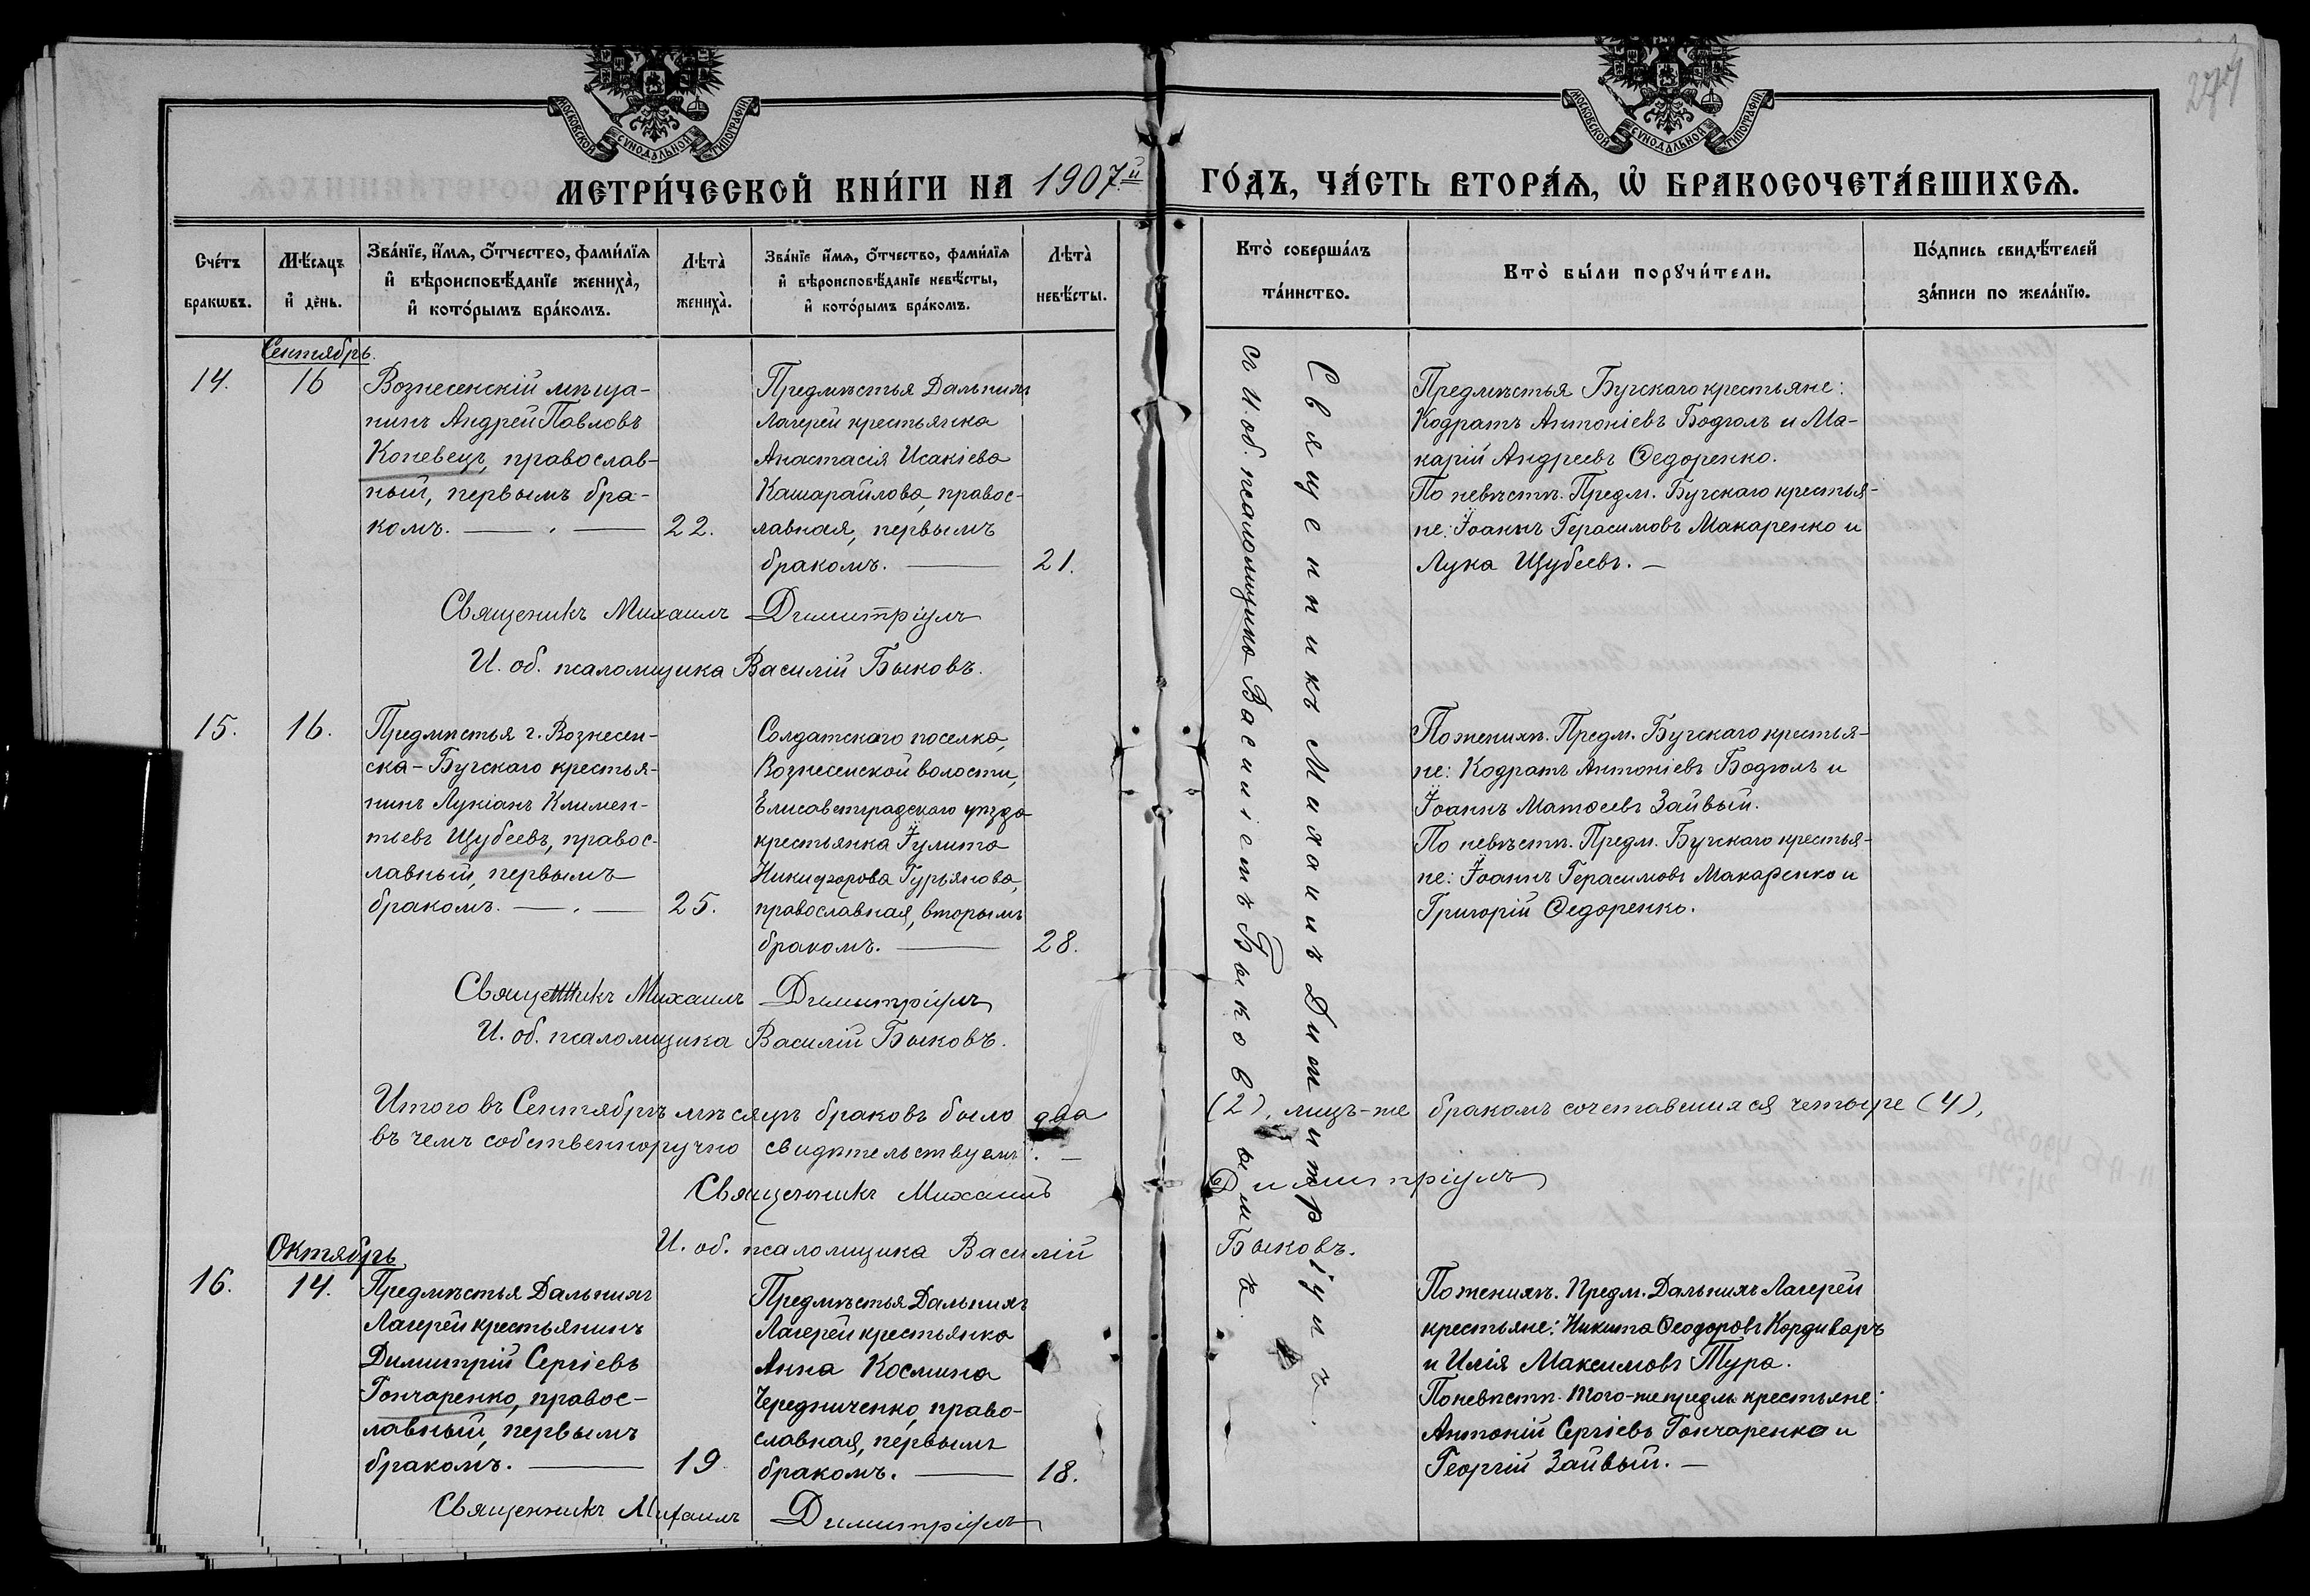 МОСКОВСКОЙ СѴНОДАЛЬНОЙ ТИПОГРАФІИ
МОСКОВСКОЙ СѴНОДАЛЬНОЙ ТИПОГРАФІИ
МЕТРИ́ЧЕСКОЙ КНИ́ГИ НА 1907й ГО́ДЪ, ЧА́СТЬ ВТОРА́Ѧ, Ѡ҆ БРАКОСОЧЕТА́ВШИХСѦ.
Сче́тъ
бра́кѡвъ.
Мѣ́сяцъ
и҆ де́нь.
Зва́нїе, и҆́мѧ, ѻ҆́тчество, фами́лїѧ
и҆ вѣроисповѣ́данїе жениха̀,
и҆ кото́рымъ бра́комъ.
Лѣта̀
жениха̀.
Зва́нїе и҆́мѧ, ѻ҆́тчество, фами́лїѧ
и҆ вѣроисповѣ́данїе невѣ́сты,
и҆ кото́рымъ бра́комъ.
Лѣта̀
невѣ́сты.
Кто̀ соверша́лъ
та́инство.
Кто̀ бы́ли порꙋчи́тели.
По́дпись свидѣ́телей
за́писи по жела́нїю.
Сентябрь.
14.
16
Вознесенскій мѣща-
нинъ Андрей Павловъ
Коневецъ, православ-
ный, первымъ бра-
комъ.
22.
Предмѣстья Дальнихъ
Лагерей крестьянка
Анастасія Исакіева
Кашарайлова, правос-
лавная, первымъ
бракомъ.
21.
Предмѣстья Бугскаго крестьяне:
Кодратъ Антоніевъ Бодюлъ и Ма-
карій Андреевъ Ѳедоренко.
По невѣстѣ. Предм. Бугскаго крестья-
не: Іоаннъ Герасимовъ Макаренко и
Лука Щубеевъ. —
Священикъ Михаилъ Димитріулъ
И. об. псаломщика Василій Быковъ.
Священникъ Михаилъ Димитріулъ.
съ И. об. псаломщика Василіемъ Быковымъ.
15.
16.
Предмѣстья г. Вознесен-
ска-Бугскаго крестья-
нинъ Лукіанъ Климен-
тьевъ Щубеевъ, правос-
лавный, первымъ
бракомъ.
25.
Солдатскаго поселка,
Вознесенской волости,
Елисаветградскаго уѣзда
крестьянка Іулита
Никифорова Гурьянова,
православная, вторымъ
бракомъ.
28.
По женихѣ. Предм. Бугскаго крестья-
не: Кодратъ Антоніевъ Бодюлъ и
Іоаннъ Матѳеевъ Зайвый.
По невѣстѣ. Предм. Бугскаго крестья-
не: Іоаннъ Герасимовъ Макаренко и
Григорій Ѳедоренко.
Священникъ Михаилъ Димитріулъ
И. об. псаломщика Василій Быковъ.
Итого въ Сентябрѣ мѣсяцѣ браковъ было два (2), лицъ-же бракомъ сочетавшихся четыре (4),
въ чемъ собственноручно свидѣтельствуемъ. —
Священникъ Михаилъ Димитріулъ
И. об. псаломщика Василій Быковъ.
Октябрь
16.
14.
Предмѣстья Дальнихъ
Лагерей крестьянинъ
Димитрій Сергіевъ
Гончаренко, правос-
лавный, первымъ
бракомъ.
19
Предмѣстья Дальнихъ
Лагерей крестьянка
Анна Космина
Чередниченко, право-
славная, первымъ
бракомъ.
18.
По женихѣ. Предм. Дальнихъ Лагерей
крестьяне: Никита Ѳеодоровъ Кордиваръ
и Илія Максимовъ Тура.
По невѣстѣ. Того-же предм. крестьяне:
Антоній Сергіевъ Гончаренко и
Георгій Зайвый. —
Священникъ Михаилъ Димитріулъ